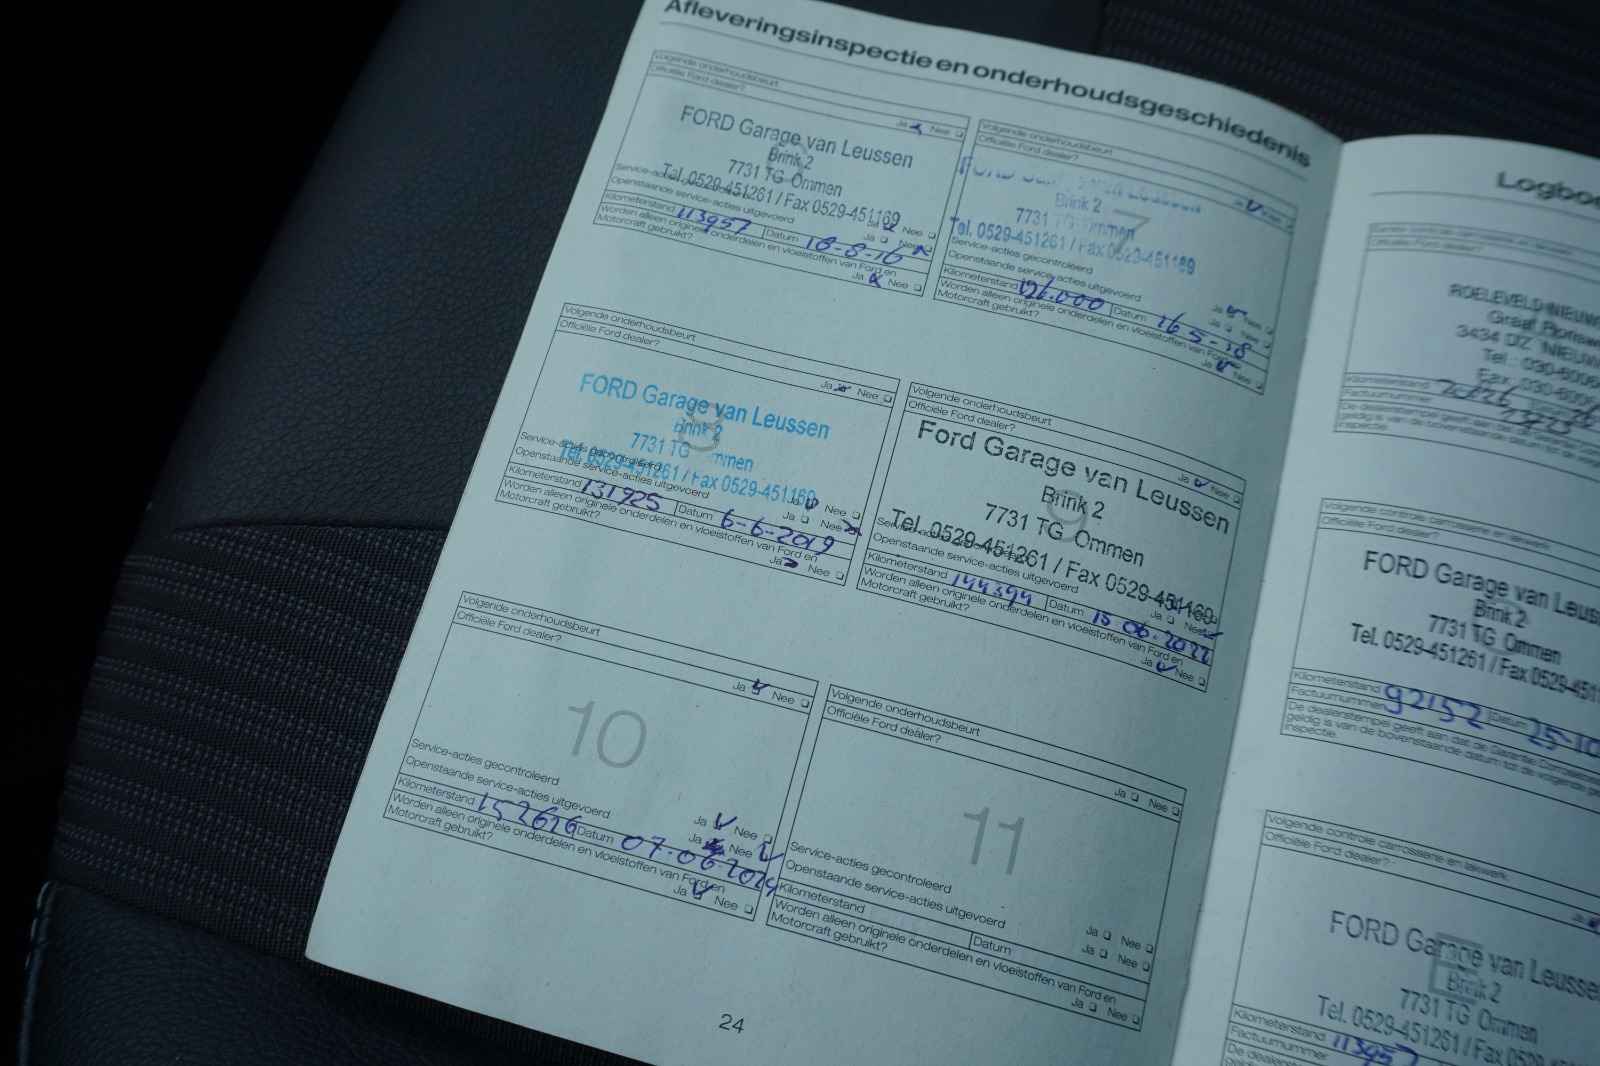 Afleveringsinspectie en onderhoudsgeschiedenis
Volgende onderhoudsbeurt
Officiële Ford dealer?
Ja Nee
FORD Garage van Leussen
6
Brink 2
7731 TG Ommen
Tel. 0529-451261 / Fax 0529-451169
Service-acties gecontroleerd
Ja Nee
Openstaande service-acties uitgevoerd
Ja Nee
Kilometerstand 113957 Datum 18-8-16
Worden alleen originele onderdelen en vloeistoffen van Ford en
Motorcraft gebruikt?
Ja Nee
Volgende onderhoudsbeurt
Officiële Ford dealer?
Ja
7
Brink 2
7731 TG Ommen
Tel. 0529-451261 / Fax 0529-451169
Service-acties gecontroleerd
Ja Nee
Openstaande service-acties uitgevoerd
Ja Nee
Kilometerstand 126.000 Datum 16-5-18
Worden alleen originele onderdelen en vloeistoffen van Ford en
Motorcraft gebruikt?
Ja Nee
Volgende onderhoudsbeurt
Officiële Ford dealer?
Ja Nee
FORD Garage van Leussen
8
Brink 2
7731 TG Ommen
Tel. 0529-451261 / Fax 0529-451169
Service-acties gecontroleerd
Ja Nee
Openstaande service-acties uitgevoerd
Ja Nee
Kilometerstand 131925 Datum 6-6-2019
Worden alleen originele onderdelen en vloeistoffen van Ford en
Motorcraft gebruikt?
Ja Nee
Volgende onderhoudsbeurt
Officiële Ford dealer?
Ja Nee
Ford Garage van Leussen
9
Brink 2
7731 TG Ommen
Tel. 0529-451261 / Fax 0529-451169
Service-acties
Openstaande service-acties uitgevoerd
Ja Nee
Kilometerstand 144394 Datum 15-06-2022
Worden alleen originele onderdelen en vloeistoffen van Ford en
Motorcraft gebruikt?
Ja Nee
Volgende onderhoudsbeurt
Officiële Ford dealer?
Ja Nee
10
Service-acties gecontroleerd
Ja Nee
Openstaande service-acties uitgevoerd
Ja Nee
Kilometerstand 152626 Datum 07-06-2024
Worden alleen originele onderdelen en vloeistoffen van Ford en
Motorcraft gebruikt?
Ja Nee
Volgende onderhoudsbeurt
Officiële Ford dealer?
Ja Nee
11
Service-acties gecontroleerd
Ja Nee
Openstaande service-acties uitgevoerd
Ja Nee
Kilometerstand Datum
Worden alleen originele onderdelen en vloeistoffen van Ford en
Motorcraft gebruikt?
Ja Nee
24
Logbo
ROELEVELD NIEUW
Graaf
3434 DZ NIEUW
Tel.: 030-
Fax
Kilometerstand
Volgende controle carrosserie en lakwerk
Officiële Ford dealer?
FORD Garage van Leuss
Brink 2
7731 TG Ommen
Tel. 0529-451261 / Fax 0529-451
Kilometerstand 92152 Datum 25-10
Factuurnummer
De dealerstempel geeft aan dat de Garantie
geldig is van de bovenstaande datum tot de volgende
inspectie.
Volgende controle carrosserie en lakwerk
Officiële Ford dealer?
FORD Garage van Leusse
Brink 2
7731 TG Ommen
Tel. 0529-451261 / Fax 0529
Kilometerstand 113957
Factuurnummer
De dealers